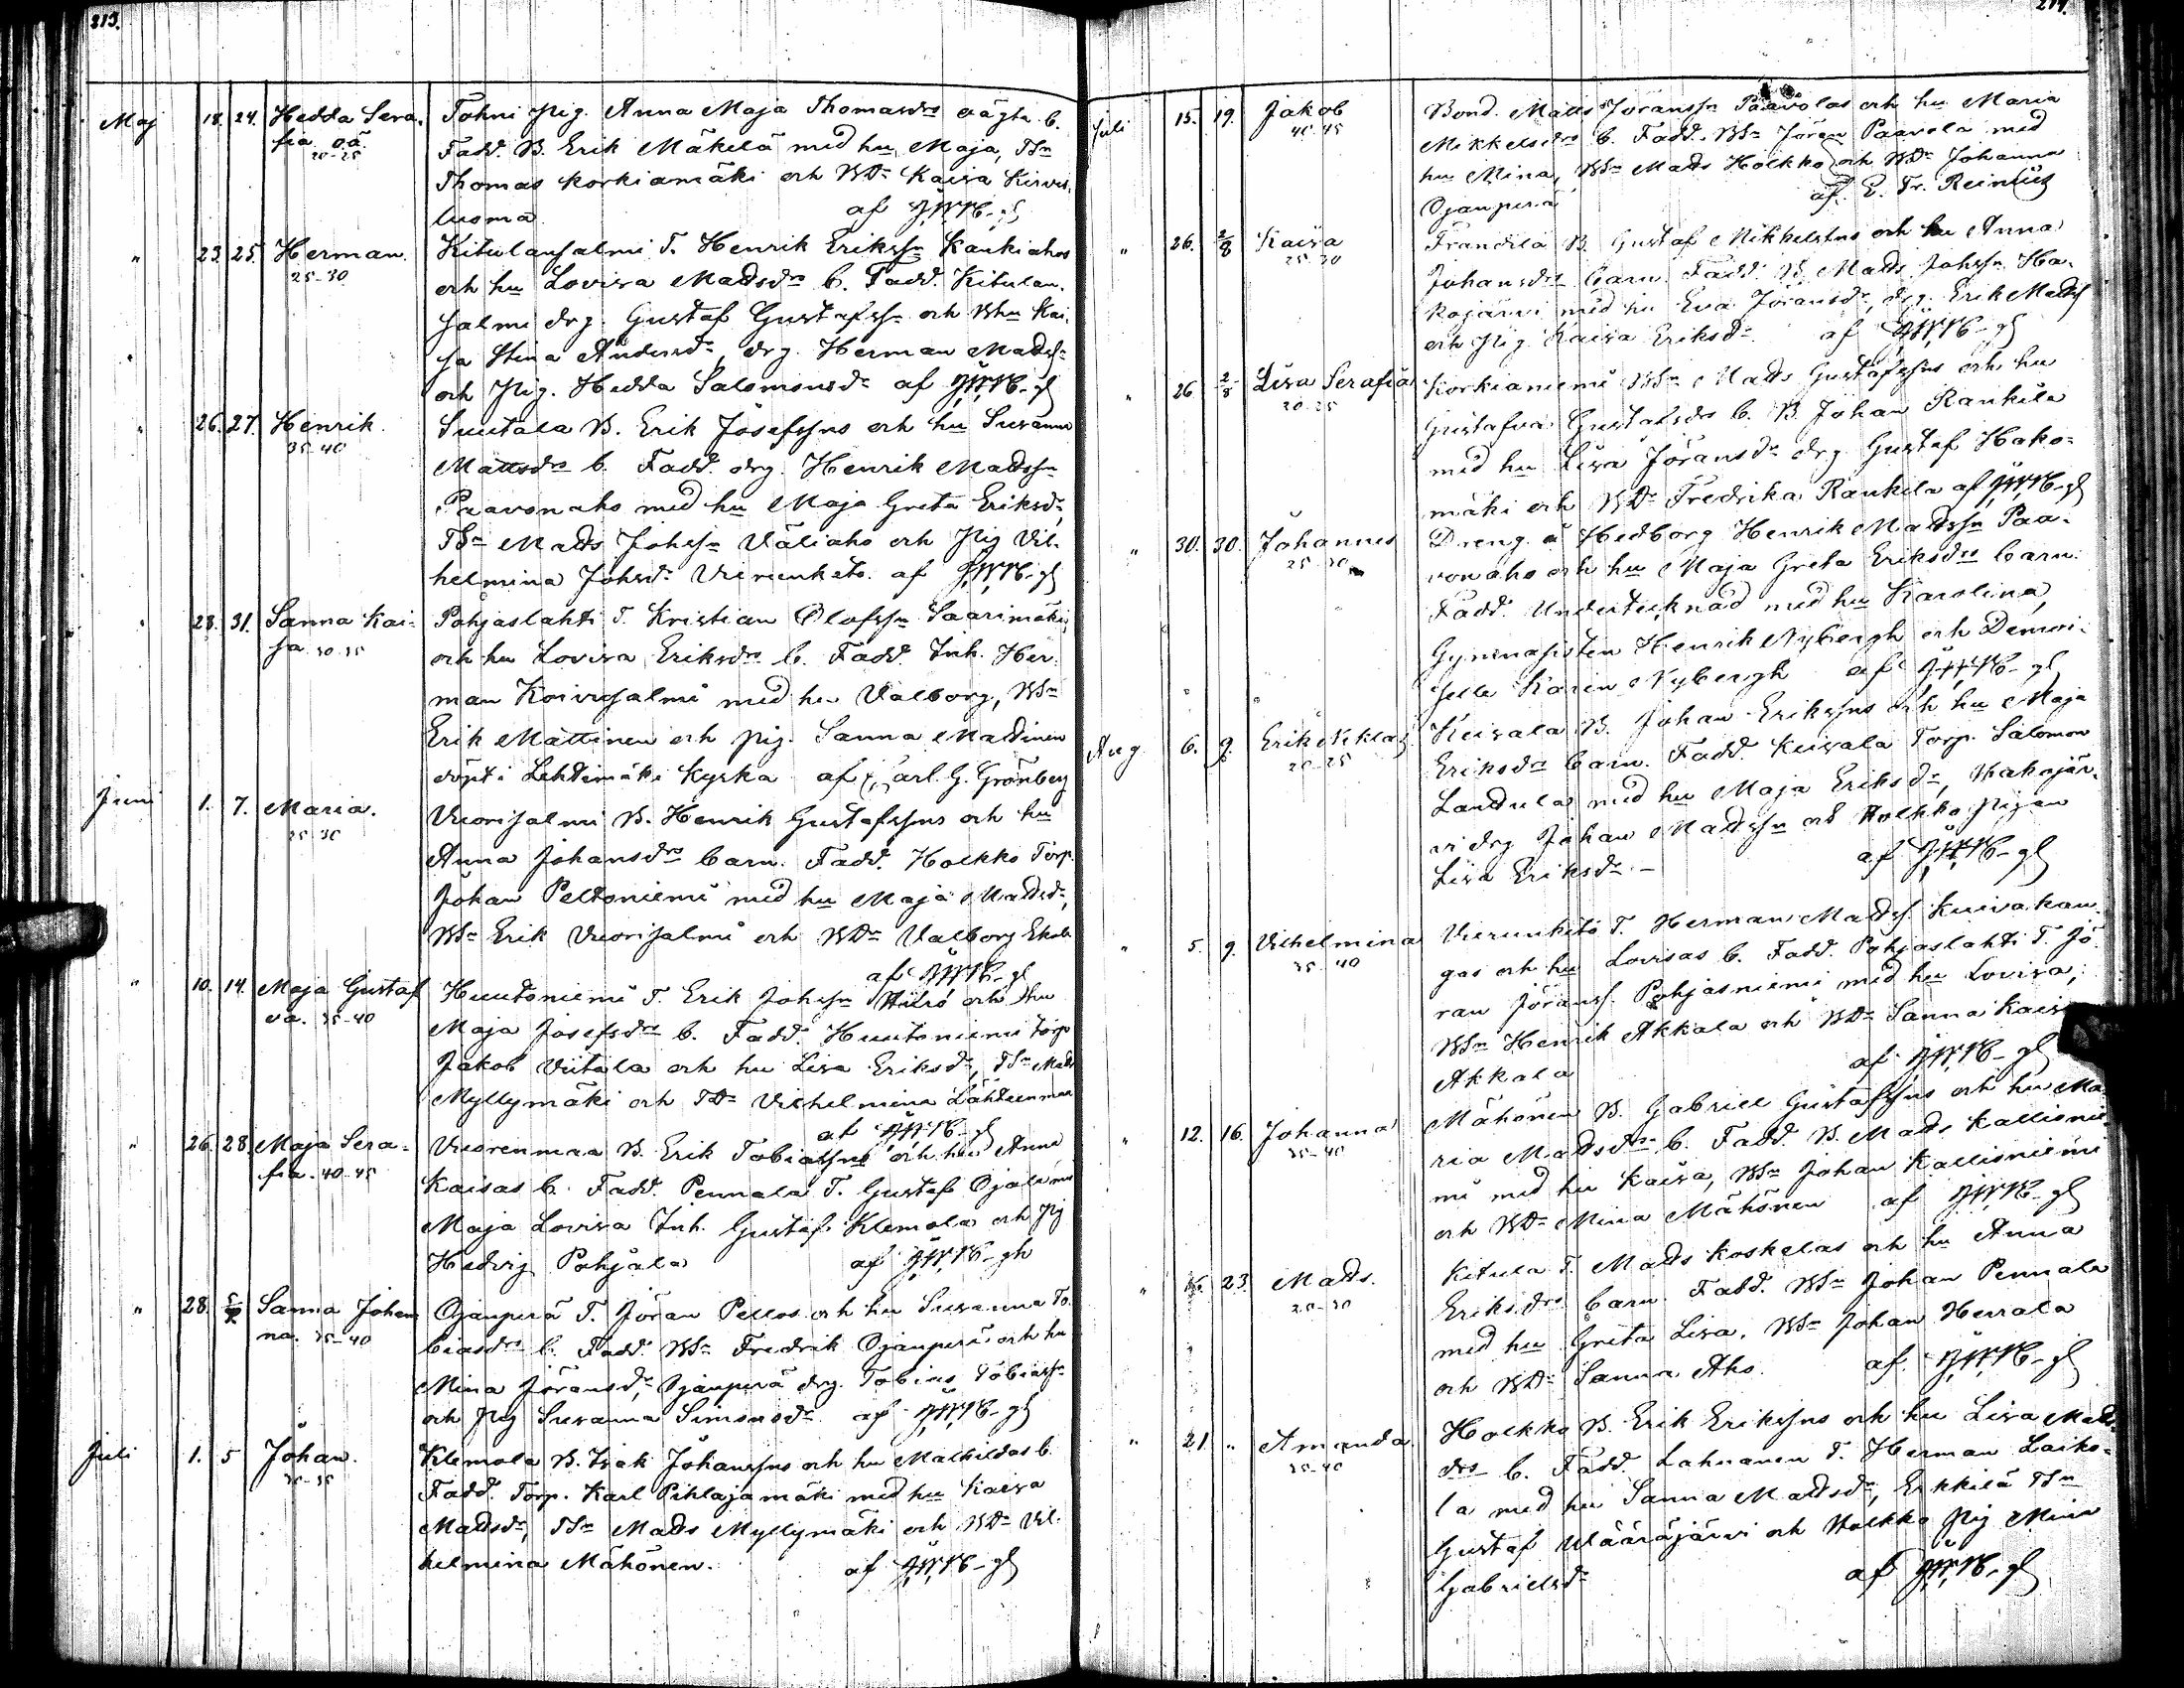 213.
Maj 18. 24. Hedda Sera- Tohni Pig. Anna Maja Thomasdrs oägta b.
fia. oä. Fadd. B. Erik Mäkelä med hu Maja, TSn
20-25 Thomas Korkiamäki och BDr Kaisa Kirves
luoma af
" 23. 25. Herman. Kitulansalmi T. Henrik Erikssn Kaukiahos
25-30 och hu Lovisa Madsdrs b. Fadd. Kitulan-
salmi drg. Gustaf Gustafssn och Bhu Kai-
sa Stina Andersdr, drg. Herman Madss
och Pig. Hedda Salomonsdr af
" 26. 27. Henrik. Suutala B. Erik Josefssns och hu Susanna
35-40 Mattsdrs b. Fadd. drg. Henrik Madssn
Paavonaho med hu Maja Greta Eriksdr,
TSn Mads Johssn Väliaho och Pig Vil-
helmina Johsdr Vierunketo. af
" 28. 31. Sanna Kai- Pohjaslahti T. Kristian Olofssn Saarimäki
sa 30-35 och hu Lovisa Eriksdrs b. Fadd. Inh. Her-
man Koivusalmi med hu Valborg, BSn
Erik Mattinen och pig. Sanna Mattinen
döpt i Lehtimäki Kyrka af Carl G. Grönberg
Juni 1. 7. Maria. Vuorisalmi B. Henrik Gustafssns och hu
25-30 Anna Johansdrs barn. Fadd. Holkko Torp.
Johan Peltoniemi med hu Maja Madsdr,
BSn Erik Vuorisalmi och BDr Valborg
af
" 10. 14. Maja Gustaf Huutoniemi T. Erik Johssn och hu
va. 35-40 Maja Josefsdrs b. Fadd. Huutoniemi torp
Jakob Viitala och hu Lisa Eriksdr, TSn Mads
Myllymäki och TDr Vilhelmina Lähteenmaa
af
" 26. 28. Maja Sera- Vuorenmaa B. Erik Tobiassns och hu Anna
fia. 40-45 Kaisas b. Fadd. Pennala T. Gustaf
Maja Lovisa Inh. Gustaf Klemola och Pig
Hedvig Pohjala af
" 28. Sanna Johan Ojanperä T. Jöran Pellos och hu Susanna To-
na. 35-40 biasdrs b. Fadd. BSn Fredrik Ojanperä och hu
Mina Jöransdr, Ojanperä drg. Tobias Tobiass
och Pig Susanna Simonsdr af
Juli 1. 5 Johan. Klemola B. Isak Johanssns och hu Mathildas b.
30-35 Fadd. Torp. Karl Pihlajamäki med hu Kaisa
Madsdr, TSn Mads Myllymäki och BDr Vil-
helmina Mähönen. af
214.
Juli 15. 19. Jakob Bond. Matts Joranssn Paavolas och hu Maria
40-45 Mikkelsdrs b. Fadd. BSn Jöran Paavola med
hu Mina, BSn Mads Holkko och BDr Johanna
Ojanperä af E. Fr. Reinius
" 26. 2/8 Kaisa Frandilä B. Gustaf Mikkelssns och hu Anna
25-30 Johansdrs barn. Fadd. B. Mads Johssn Ha-
kojärvi med hu Eva Jöransdr, drg. Erik Madss
och Pig Kaisa Eriksdr. af
" 26 2/8 Lisa Serafia Korkianiemi BSn Mads Gustafssns och hu
20-25 Gustafva Gustafsdrs b. B. Johan Rankila
med hu Lisa Jöransdr drg Gustaf Hako-
mäki och BDr Fredrika Rankila af
" 30. 30. Johannes Dreng. å Hedborg Henrik Madssn Paa-
25-30 vonaho och hu Maja Greta Eriksdrs barn.
Fadd. Undertecknad med hu Karolina,
Gymnasisten Henrik Nybergh och Demoi-
selle Karin Nybergh af
Aug 6. 9. Erik Niklas Keisala B. Johan Erikssns och hu Maja
20-25 Eriksdrs barn. Fadd. Keisala Torp. Salomon
Landula med hu Maja Eriksdr, Hakojär-
vi drg Johan Madssn och Holkko pigan
Lisa Eriksdr. - af
" 5. 9. Vilhelmina Vierunketo T. Herman Madss. Kuivakan-
35-40 gas och hu Lovisas b. Fadd. Pohjaslahti T. Jö-
ran Jöranss. Pohjasniemi med hu Lovisa,
BSn Henrik Akkala och BDr Sanna Kaisa
Akkala af
" 12. 16. Johanna Mähönen B. Gabriel Gustafssns och hu Ma-
35-40 ria Madsdrs b. Fadd. B. Mads Kallisnie-
mi med hu Kaisa, BSn Johan Kallisniemi
och BDr Mina Mähönen af
" 23. Mads. Kitula T. Mads Koskelas och hu Anna
Eriksdrs barn. Fadd. BSn Johan Pennala
med hu Greta Lisa. BSn Johan Herrala
och BDr Sanna Aho. af
" 21. " Amanda. Holkko B. Erik Erikssns och hu Lisa Mads-
35-40 drs b. Fadd. Lahnanen T. Herman Laiko-
la med hu Sanna Madsdr, Erkkilä TSn
Gustaf Wääräjärvi och Holkko Pig Mina
Gabrielsdr af